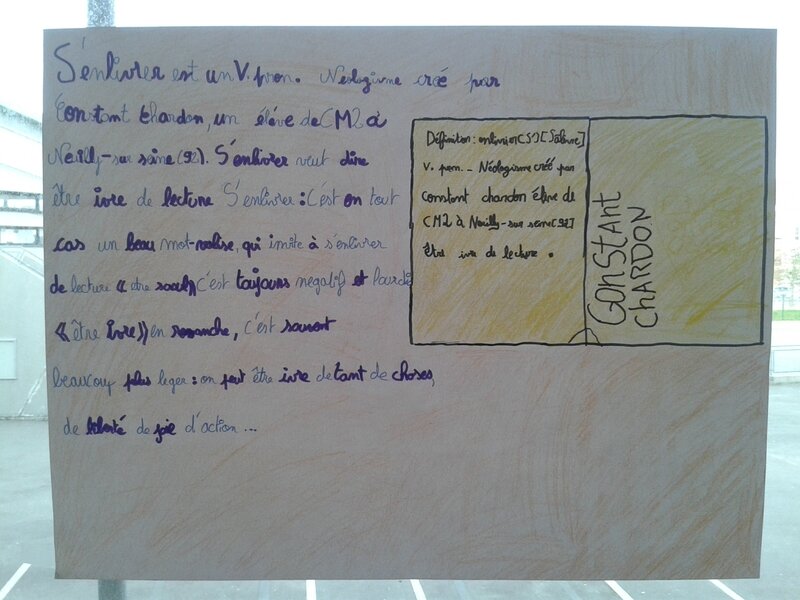 S'enlivrer est un V. pron. Néologisme créé par
Constant Chardon, un élève de CM2 à
Neuilly-sur seine (92). S'enlivrer veut dire
être ivre de lecture S'enlivrer : C'est en tout
cas un beau mot-valise, qui imite à s'enlivrer
de lecture « être saoul » c'est toujours negatif et lourd
« être ivre » en revanche, c'est souvent
beaucoup plus leger : on peut être ivre de tant de choses,
de liberté de joie d'action ...
Déffinition : enlivrer (S')
V. pron. - Néologisme créé par
constant chardon élève de
CM2 à Neuilly-sur seine (92)
être ivre de lecture .
CONSTANT
CHARDON